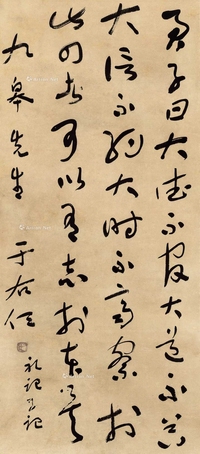 君子曰大德不官大道不器
大信不約大時不齊察於
此四者可以有志於本矣
九皋先生 于右任
礼記學記